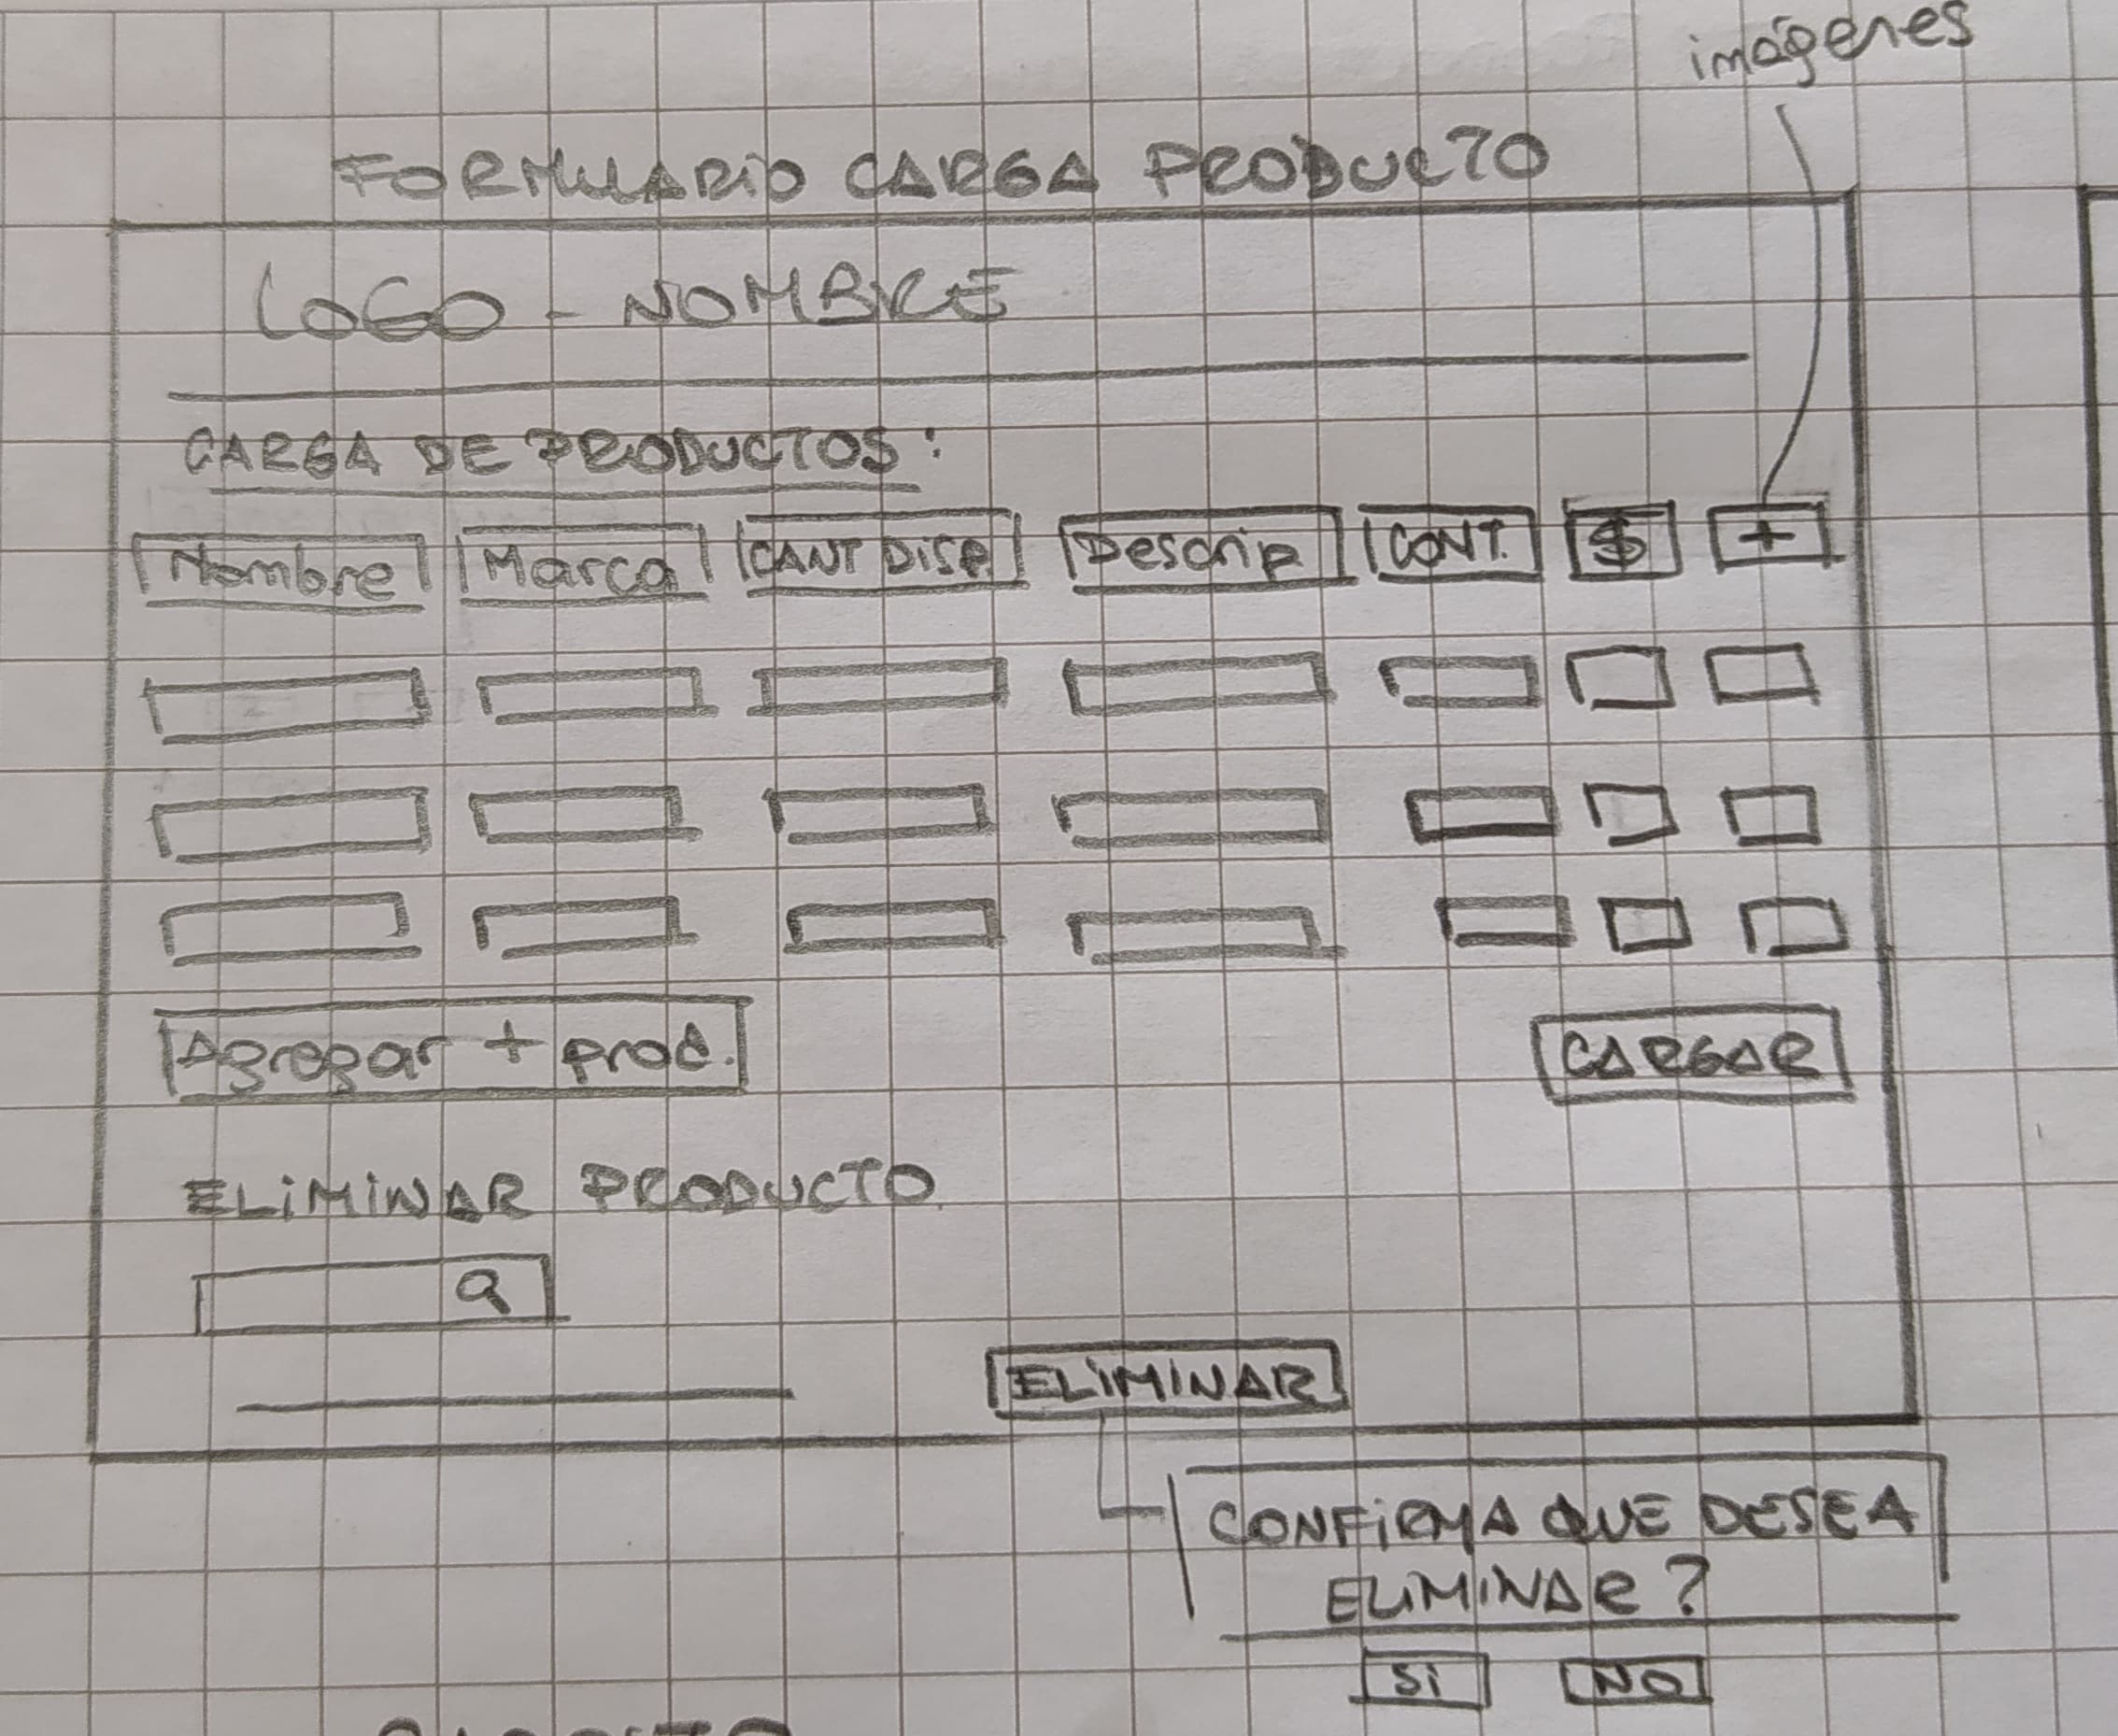 imágenes
FORMULARIO CARGA PRODUCTO
LOGO - NOMBRE
CARGA DE PRODUCTOS:
Nombre Marca CANT DISP Descrip CONT. $ +
Agregar + prod. CARGAR
ELIMINAR PRODUCTO
ELIMINAR
CONFIRMA QUE DESEA
ELIMINAR?
SI NO